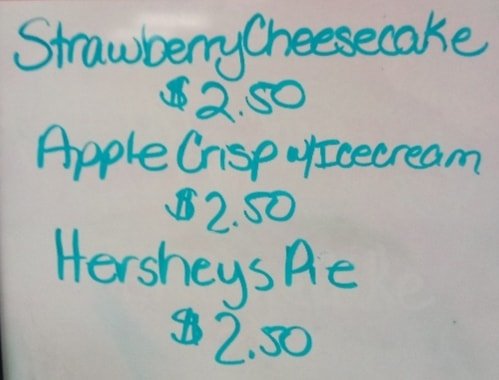 Strawberry Cheesecake
$2.50
Apple Crisp w/Icecream
$2.50
Hersheys Pie
$2.50